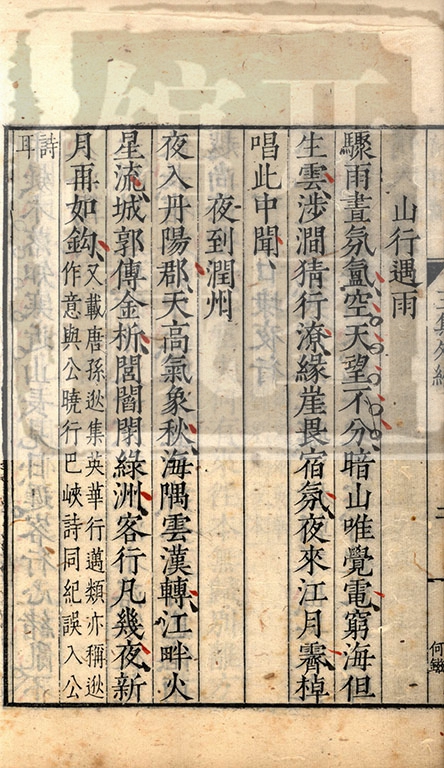 山行遇雨
驟雨晝氛氳空天望不分暗山唯覺電窮海但
生雲涉澗猜行潦緣崖畏宿氛夜來江月霽棹
唱此中聞
夜到潤州
夜入丹陽郡天高氣象秋海隅雲漢轉江畔火
星流城郭傳金柝閭閻閉綠洲客行凡幾夜新
月再如鉤又載唐孫逖集英華行邁類亦稱逖
作意與公曉行巴峽詩同紀誤入公
詩
耳